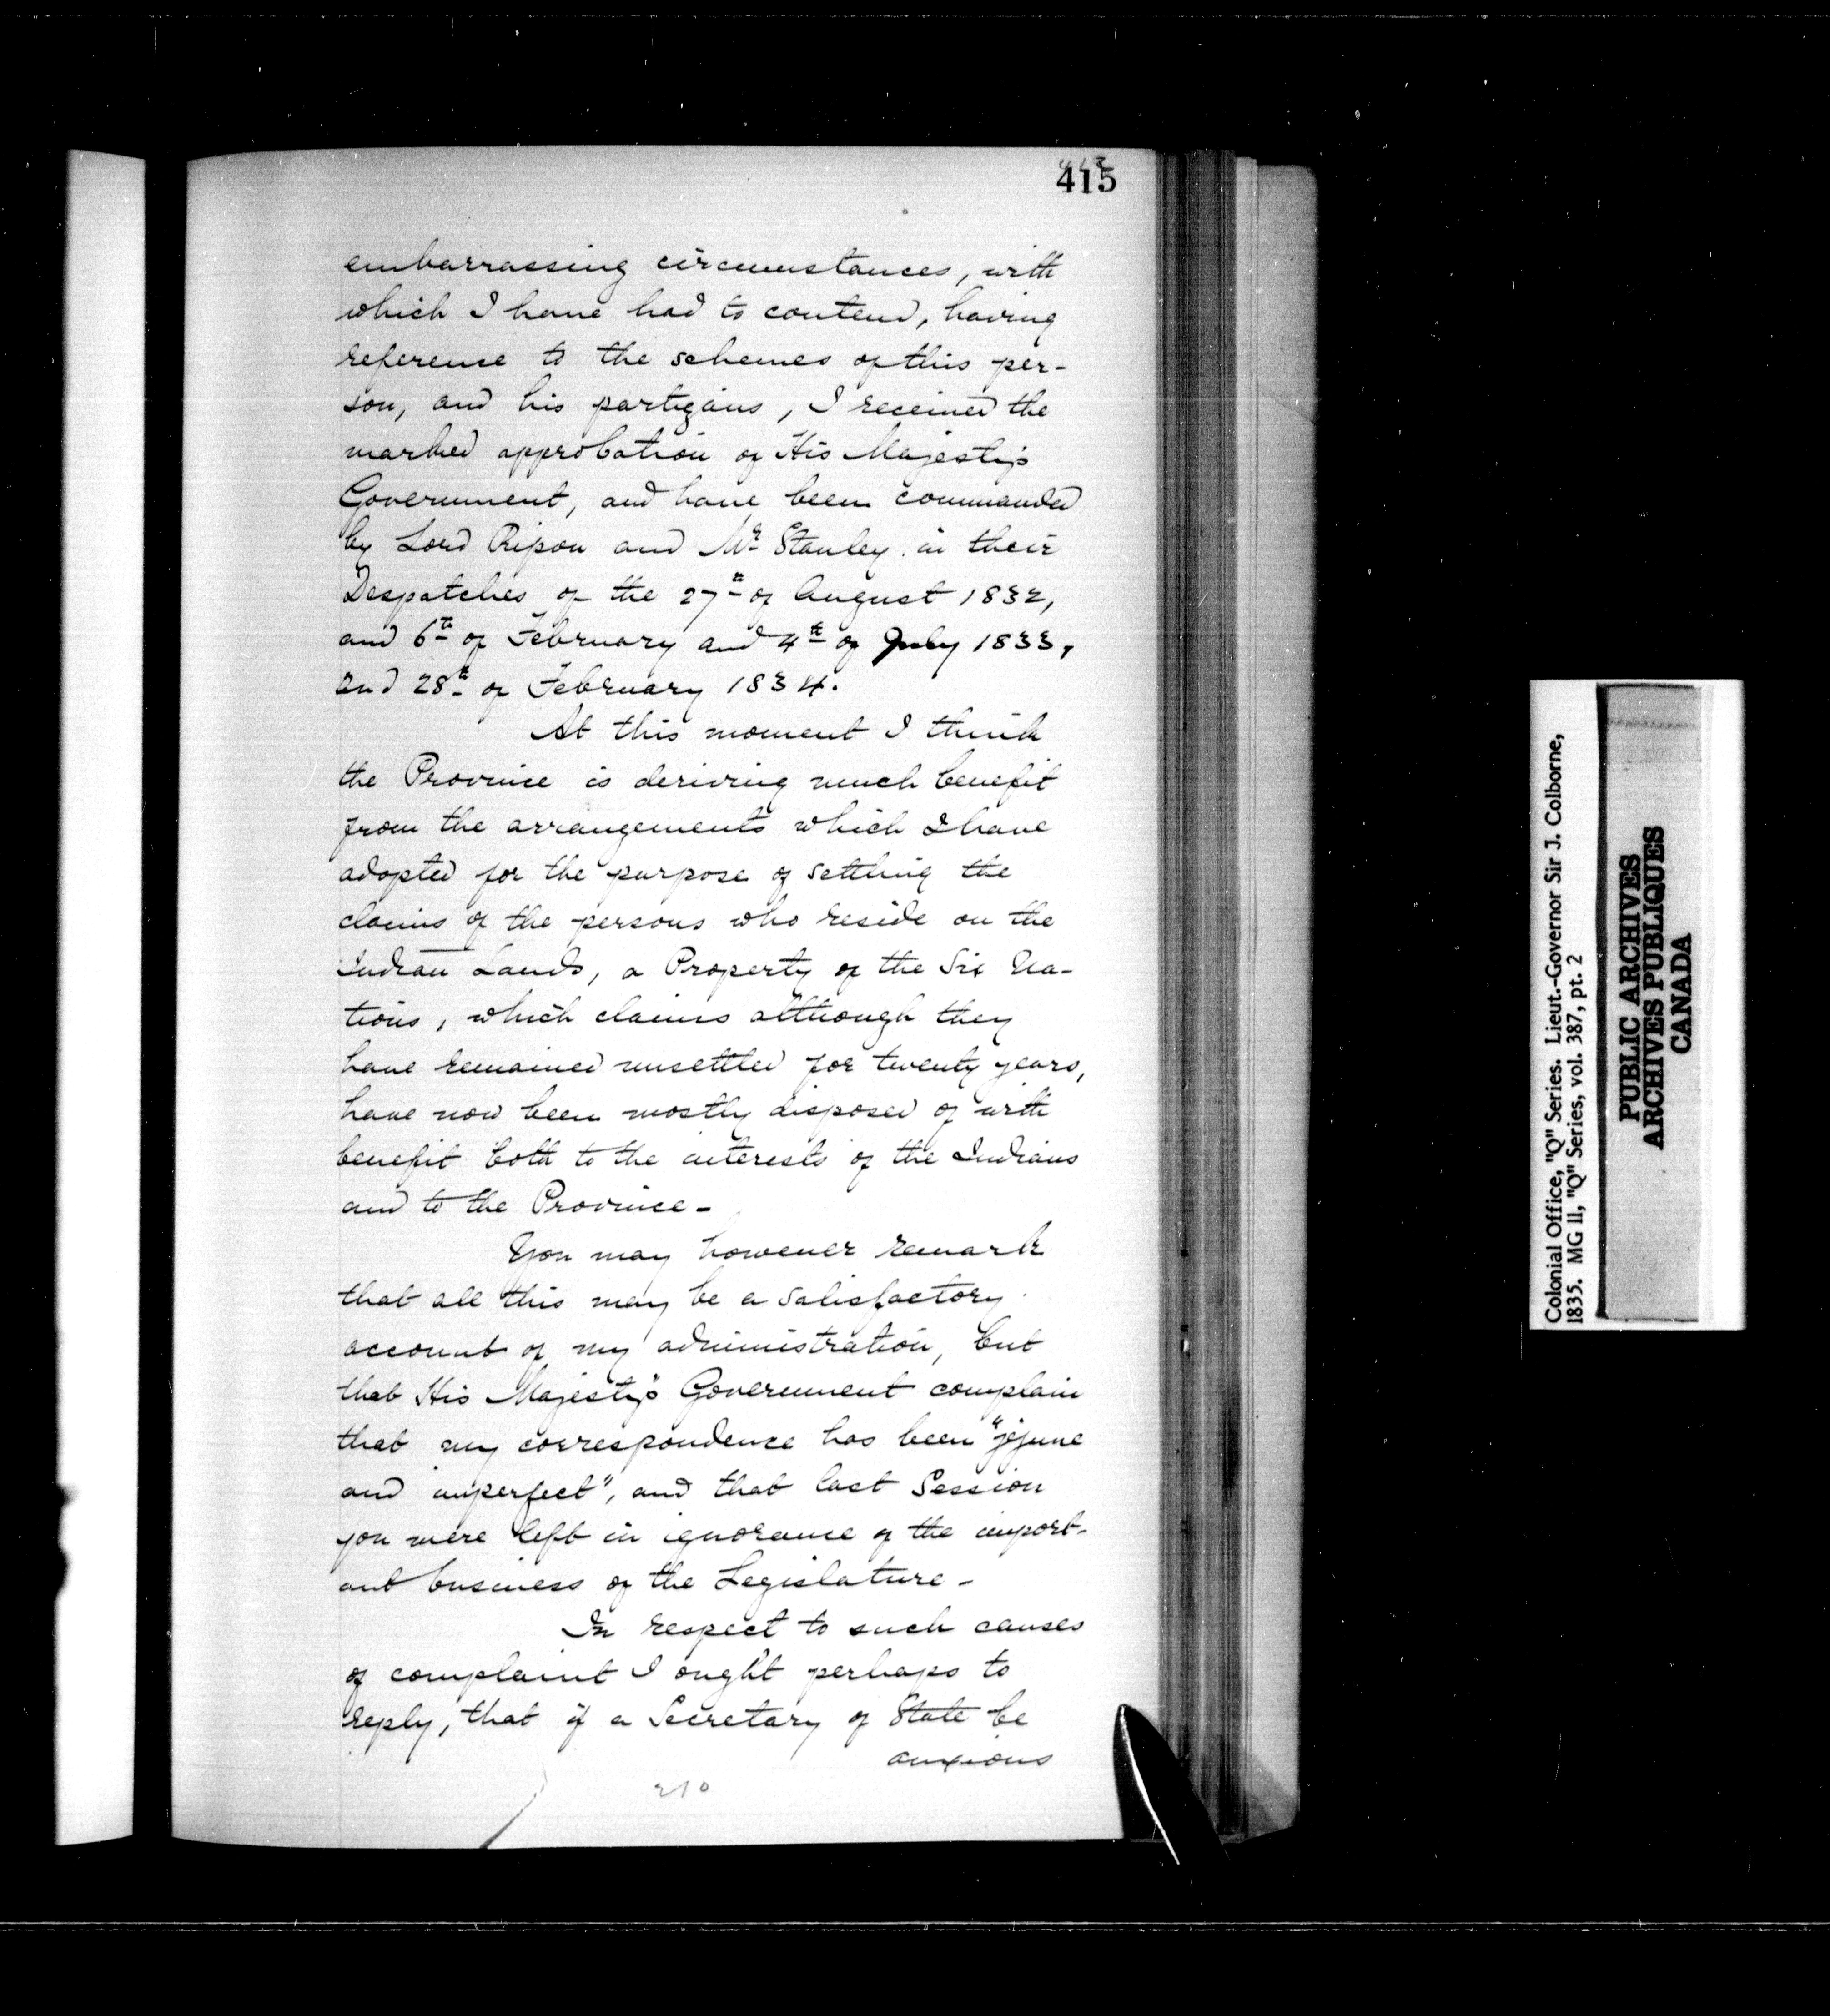 415
embarrassing circumstances, with
which I have had to contend, having
reference to the schemes of this per-
son, and his partizans, I received the
marked approbation of His Majesty's
Government, and have been commanded
by Lord Ripon and Mr Stanley in their
Despatches of the 27th of August 1832,
and 6th of February and 4th of July 1833,
and 28th of February 1834.
At this moment I think
the Province is deriving much benefit
from the arrangements which I have
adopted for the purpose of settling the
claims of the persons who reside on the
Indian Lands, a Property of the Six Na-
tions, which claims although they
have remained unsettled for twenty years,
have now been mostly disposed of with
benefit both to the interests of the Indians
and to the Province -
You may however remark
that all this may be a satisfactory
account of my administration, but
that His Majesty's Government complain
that my correspondence has been "jejune
and imperfect", and that last Session
you were left in ignorance of the import-
ant business of the Legislature -
In respect to such causes
of complaint I ought perhaps to
reply, that if a Secretary of State be
anxious
210
Colonial Office, "Q" Series. Lieut.-Governor Sir J. Colborne,
1835. MG 11, "Q" Series, vol. 387, pt. 2
PUBLIC ARCHIVES
ARCHIVES PUBLIQUES
CANADA